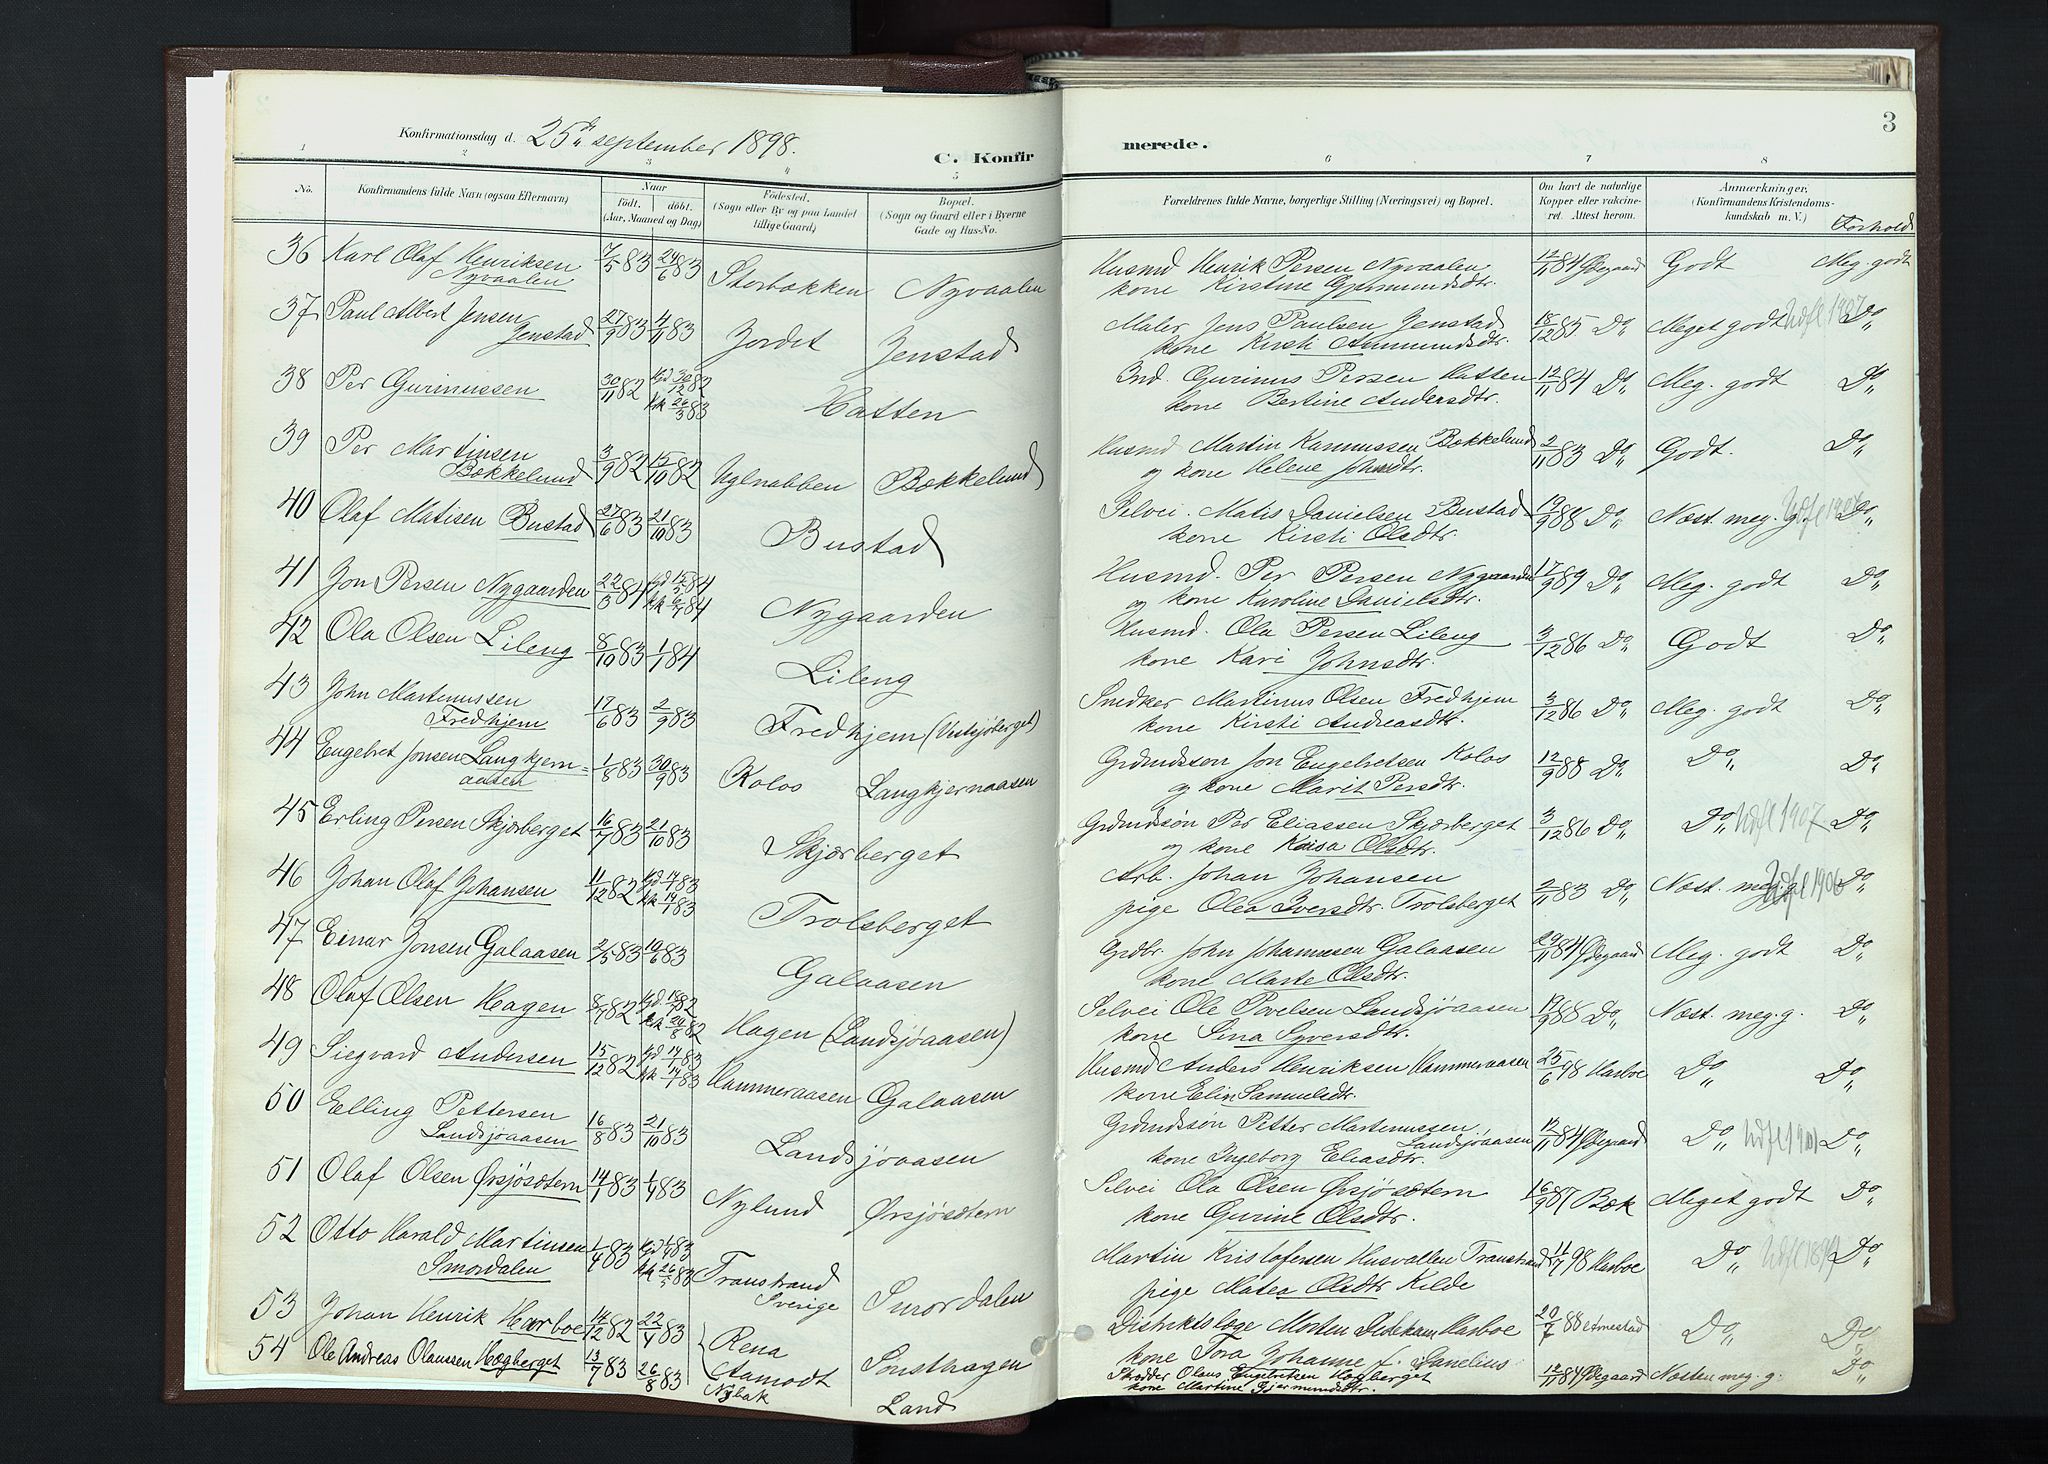 3
Konfirmationsdag d. 25de september 1898.
C. Konfirmerede.
1 2 3 4 5 6 7 8
No. Konfirmandens fulde Navn (ogsaa Efternavn) Naar födt. döbt. (Aar, Maaned og Dag) Födested. (Sogn eller By og paa Landet tillige Gaard) Bopæl. (Sogn og Gaard eller i Byerne Gade og Hus-No. Forældrenes fulde Navne, borgerlige Stilling (Næringsvei) og Bopæl. Om havt de naturlige Kopper eller vaccineret. Attest herom. Anmærkninger. (Konfirmandens Kristendomskundskab m. V.) Forhold
36 Karl Olaf Henriksen 7/5 83 24/6 83 Storbækken Nyvaalen Husmd Henrik Persen Nyvaalen 12/11 84 Ødegaard Godt Meg. godt
Nyvaalen kone Kirstine Gjermundsdtr.
37 Paul Albert Jensen 27/9 83 4/11 83 Jordet Jenstad Maler Jens Paulsen Jenstad 18/12 85 Do Meget godt Udfl 1907 Do
Jenstad kone Kirsti Ammundsdtr.
38 Per Gurinussen 30/11 82 hjd 30/12 82 Hatten Ind. Gurinus Persen Hatten 12/11 84 Do Meg. godt Do
kk 26/3 83 kone Bertine Andersdtr.
39 Per Martinsen 3/9 82 15/10 82 Uglnabben Bækkelund Husmd Martin Rasmussen Bækkelund 2/11 83 Do Godt. Do
Bækkelund og kone Helene Johnsdtr.
40 Olaf Matisen Bustad 27/6 83 21/10 83 Bustad Selvei. Matis Danielsen Bustad 19/9 88 Do Næst. meg. g. Do
kone Kirsti Olsdtr.
41 Jon Persen Nygaarden 22/3 84 hjd 15/5 84 Nygaarden Husmd. Per Persen Nygaarden 17/9 89 Do Meg. godt Do
kk 6/7 84 og kone Karoline Danielsdtr.
42 Ola Olsen Lileng 8/10 83 1/1 84 Lileng Husmd. Ola Persen Lileng 3/12 86 Do Godt Do
kone Kari Johnsdtr.
43 John Martinussen 17/6 83 2/9 83 Fredhjem (Vestsjøberget) Snedker Martinus Olsen Fredhjem 3/12 86 Do Meg. godt Do
Fredhjem kone Kirsti Andreasdtr.
44 Engebret Jonsen Langkjern= 1/8 83 30/9 83 Kolos Langkjernaasen Grdmdssøn Jon Engebretsen Kolos 12/9 88 Do Do Do
aasen og kone Marit Persdtr.
45 Erling Persen Skjærberget 16/7 83 21/10 83 Skjærberget Grdmdssøn Per Eliassen Skjærberget 3/12 86 Do Do Udfl 1907. Do
og kone Kaisa Olsdtr.
46 Johan Olaf Johansen 11/12 82 hjd 14/1 83 Trolsberget Arb. Johan Johansen 2/11 83 Do Næst. meg. g. Udfl 1906 Do
kk 14/1 83 pige Olea Iversdtr. Trolsberget
47 Einar Jonsen Galaasen 2/5 83 10/6 83 Galaasen Grdbr John Johannesen Galaasen 29/11 84 Ødegaard Meg. godt Do
kone Marte Olsdtr.
48 Olaf Olsen Hagen 8/7 82 hjd. 18/7 82 Hagen (Landsjøaasen) Selvei Ole Povelsen Landsjøaasen 19/9 88 Do Næst. meg. g. Do
kk 20/8 82 kone Sina Syversdtr.
49 Siegvard Andersen 15/12 82 hjd 14/1 83 Hammeraasen Galaasen Husmd Anders Henriksen Hammeraasen 25/6 98 Harboe Do Do
kk 14/1 83 kone Elin Samuelsdtr.
50 Elling Pettersen 16/8 83 21/10 83 Landsjøaasen Grdmdssøn Petter Martinussen 12/11 84 Ødegaard Do Udfl 1901 Do
Landsjøaasen Landsjøaasen
kone Ingeborg Eliasdtr.
51 Olaf Olsen Ørsjøsætern 14/1 83 1/4 83 Nylund Ørsjøsætern Selvei Ola Olsen Ørsjøsætern 16/9 87 Bæk Meget godt Do
kone Gurine Olsdtr.
52 Otto Harald Martinsen 1/4 83 hjd 1/4 83 Transtrand Smørdalen Martin Kristofersen Husvallen Transtrand 11/7 98 Harboe Do Do
Smørdalen kk 26/5 83 Sverige pige Matea Olsdtr Kilde
53 Johan Henrik Harboe 14/12 82 22/4 83 Rena Sonsthagen Distriktslæge Morten Dedekam Harboe 20/7 88 Do Do
Aamodt kone Tora Johanne f.
54 Ole Andreas Olaussen Hægberget 13/7 83 26/8 83 Nybak Land Skrædder Olaus Engebretsen Hægberget 12/11 84 Ødegaard Næsten meg. g. Do
kone Martine Gjermundsdtr.